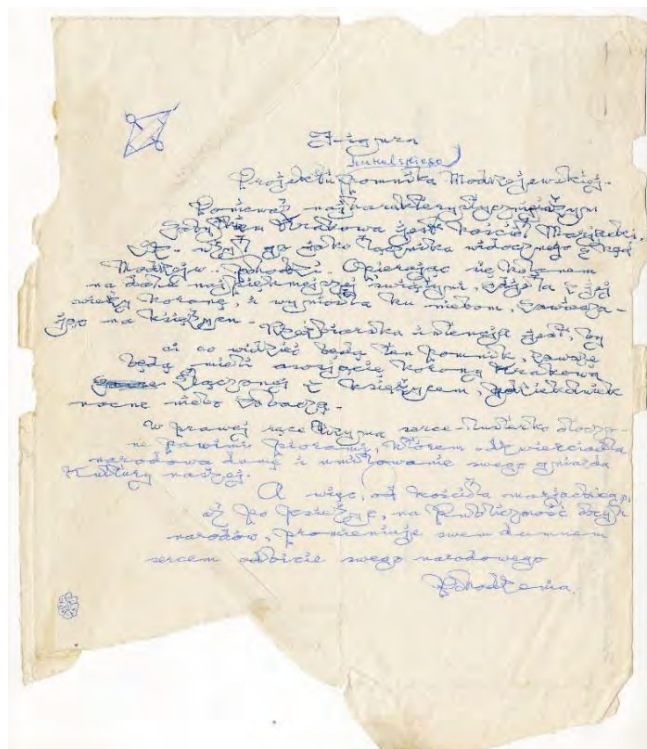 Figura
Szukalskiego
Projektu pomnika Modrzejewskiej.
Ponieważ najcharakterystyczniejszym
Krakowa jest Kościół Marjacki,
go jako łącznika widocznego z
Modrzejew.. . Opierając się kolanem
na najpiękniejszej świątyni, zdjęła z jej
wieży koronę, i wyniosła ku niebom,
jąc na księżycu. Rzeźbiarska jest, by
ci co widzieć będą ten pomnik, zawsze
będą mieli asocjację korony Krakowa
złączonej z księżycem, gdziekolwiek
nocne niebo zobaczą.
W prawej ręce trzyma serce-lusterko
ne pawimi piórami, którem odzwierciadla
narodową dumę i umiłowanie swego gniazda
Kultury naszej.
A więc, od kościoła marjackiego,
aż po księżyc, na Publiczność
narodów, promieniuje swem dumnem
sercem odbicie swego narodowego
Pochodzenia.